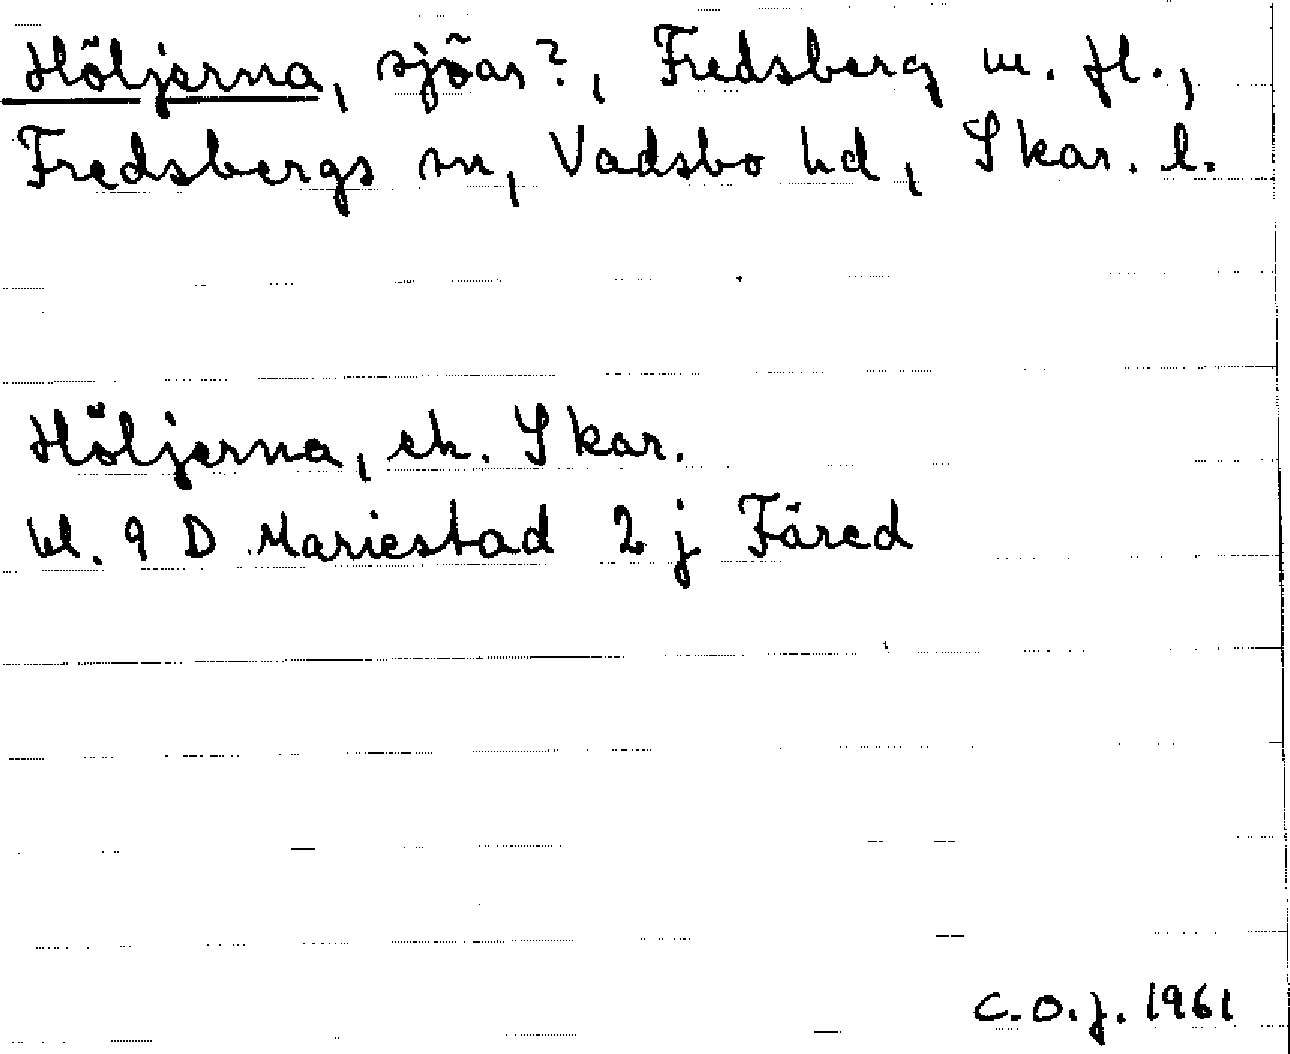 Höljerna, sjöar?, Fredsberg m. fl.,
Fredsbergs sn, Vadsbo hd, Skar. l.
Höljerna, ek. Skar.
bl. 9 D Mariestad 2 j Färed
C.O.J. 1961